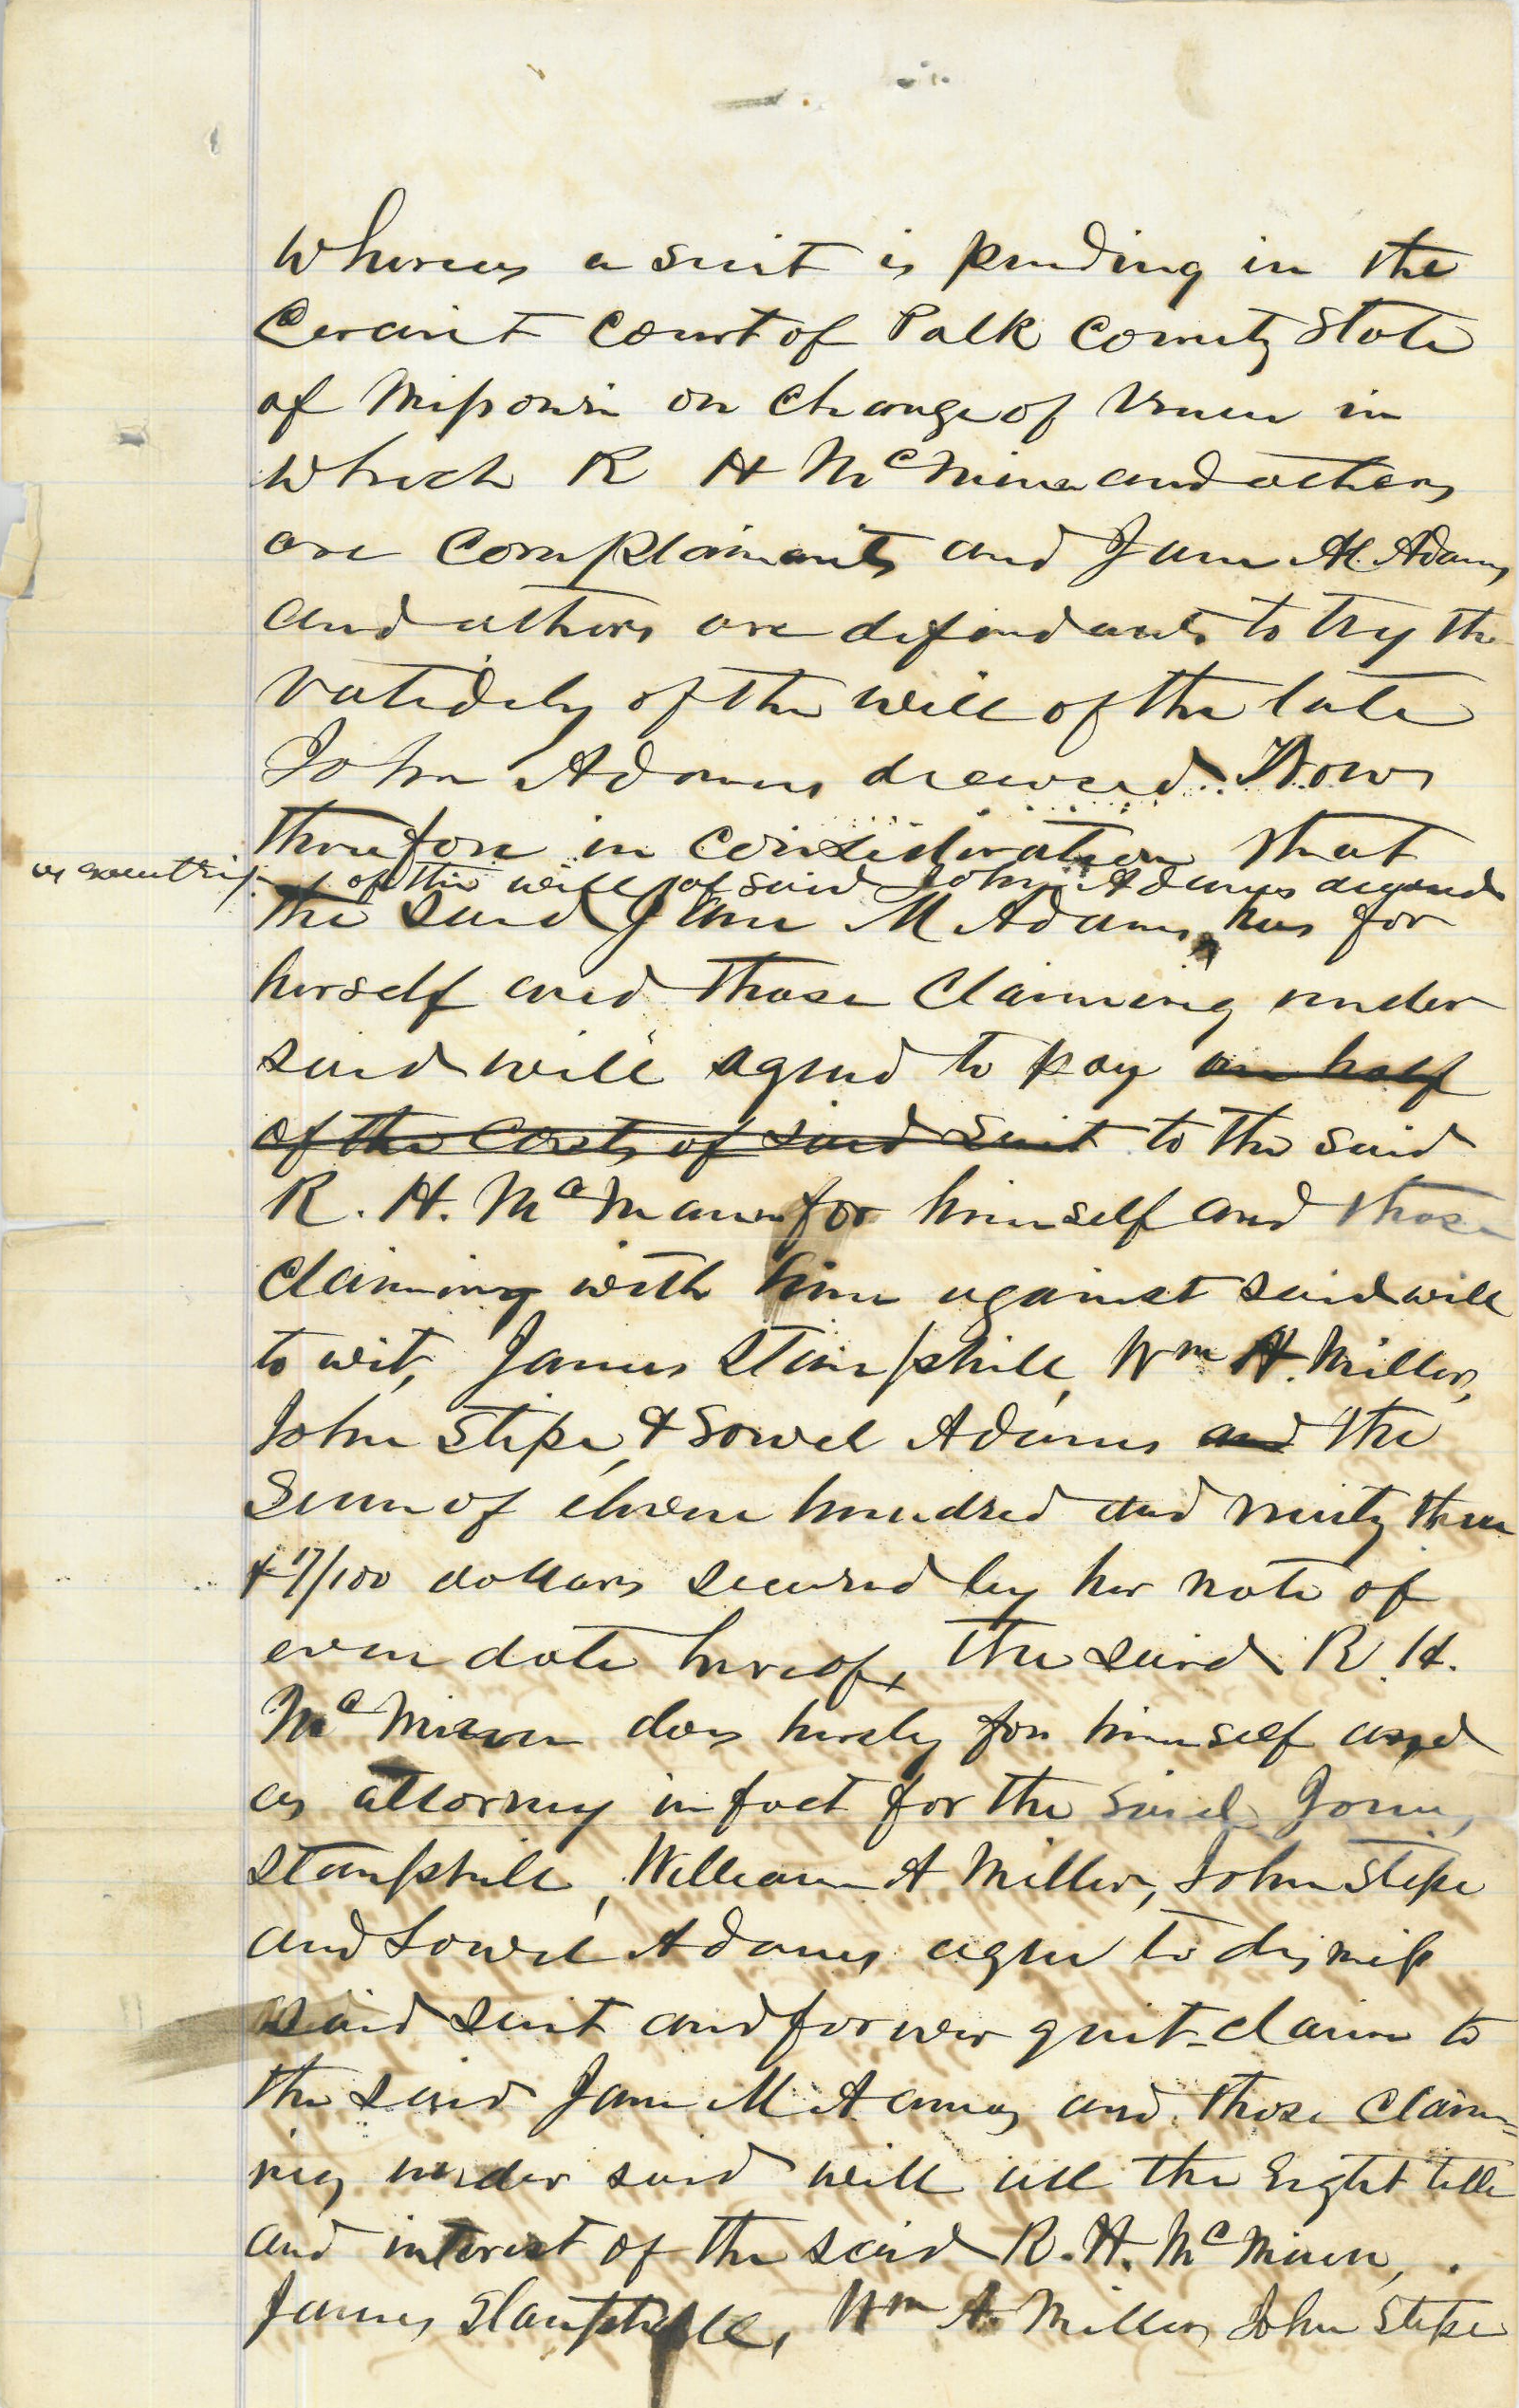 Whereas a suit is pending in the
Circuit Court of Polk County State
of Missouri on change of venue in
which R H McMinn and others
are complainants and Jane M. Adams
and others are defendants to try the
validity of the will of the late
John Adams deceased. Now
therefore in consideration that
as executrix of the will of said John Adams deceased
the said Jane M Adams has for
herself and those claiming under
said will agreed to pay one half
of the costs of said suit to the said
R. H. McMinn for himself and those
claiming with him against said will
to wit, James Stamphill, Wm H. Miller,
John Stipe, & Sowel Adams and the
Sum of eleven hundred and ninty three
& 17/100 dollars secured by her note of
even date hereof, the said R. H.
McMinn does hereby for himself and
as attorney in fact for the said James,
Stamphill, William A Miller, John Stipe
and Sowel Adams agree to dismiss
said suit and forever quit-claim to
the said Jane M Adams and those claim=
ing under said will all the right title
and interest of the said R. H. McMinn,
James Stamphill, Wm A. Miller, John Stipe